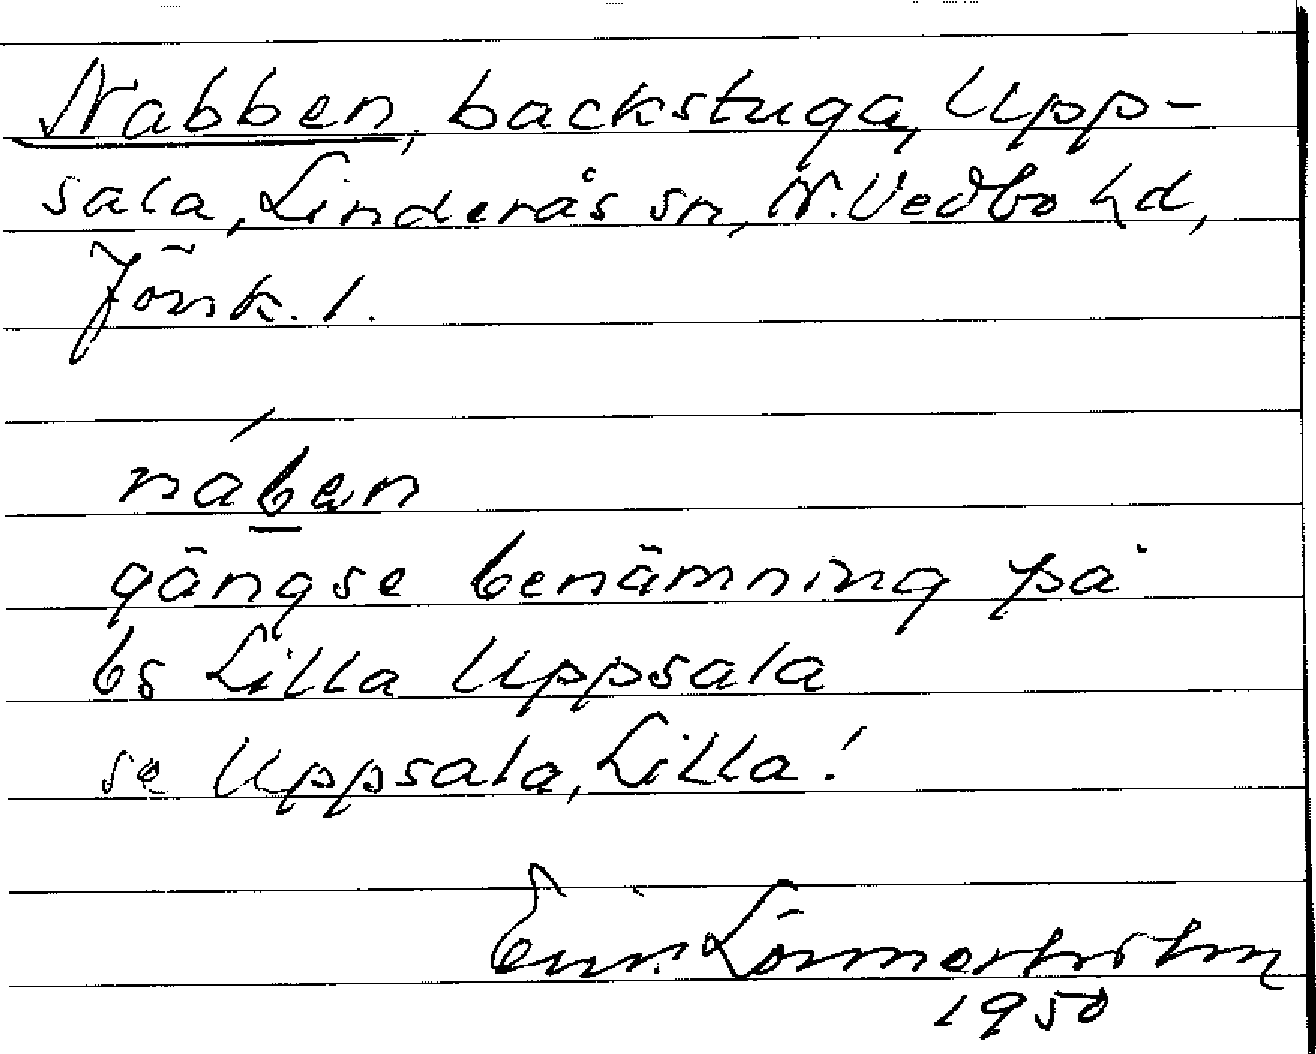 Nabben, backstuga, Upp-
sala, Linderås sn, N. Vedbo hd,
Jönk. l.
náben
gängse benämning på
bs Lilla Uppsala
se Uppsala, Lilla!
1950